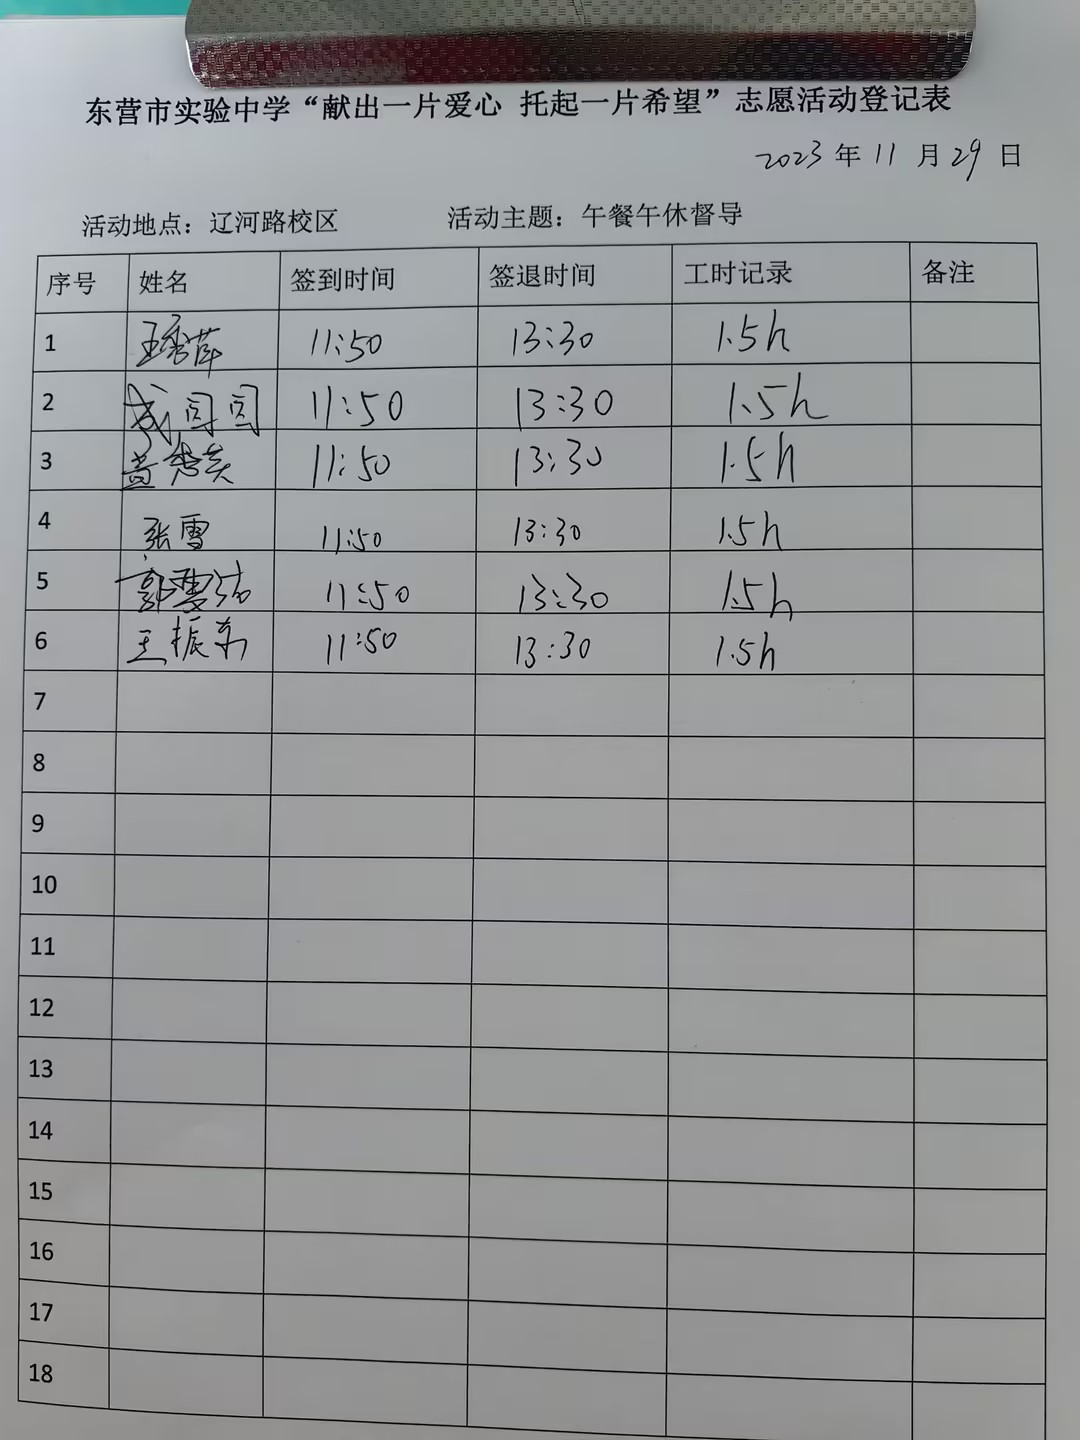 东营市实验中学“献出一片爱心 托起一片希望”志愿活动登记表
2023 年 11 月 29 日
活动地点：辽河路校区 活动主题：午餐午休督导
序号 姓名 签到时间 签退时间 工时记录 备注
1 王秀萍 11:50 13:30 1.5h
2 成闫闫 11:50 13:30 1.5h
3 黄秀英 11:50 13:30 1.5h
4 张雪 11:50 13:30 1.5h
5 郭雪洁 11:50 13:30 1.5h
6 王振 11:50 13:30 1.5h
7
8
9
10
11
12
13
14
15
16
17
18